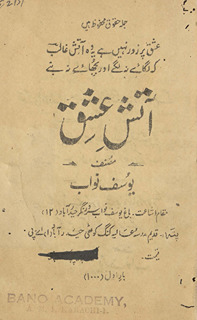 جملہ حقوق محفوظ ہیں
عشق پر زور نہیں ہے یہ وہ آتش غالب
کہ لگائے نہ لگے اور بجھائے نہ بنے
آتشِ عشق
مصنف
یوسف نواب
مقام اشاعت۔ باغ یوسف نواب حیدرآباد (۱۲)
کنگ کوٹھی حیدرآباد (۱) اے پی
قیمت
بار اول (۱۰۰۰)
BANO ACADEMY,